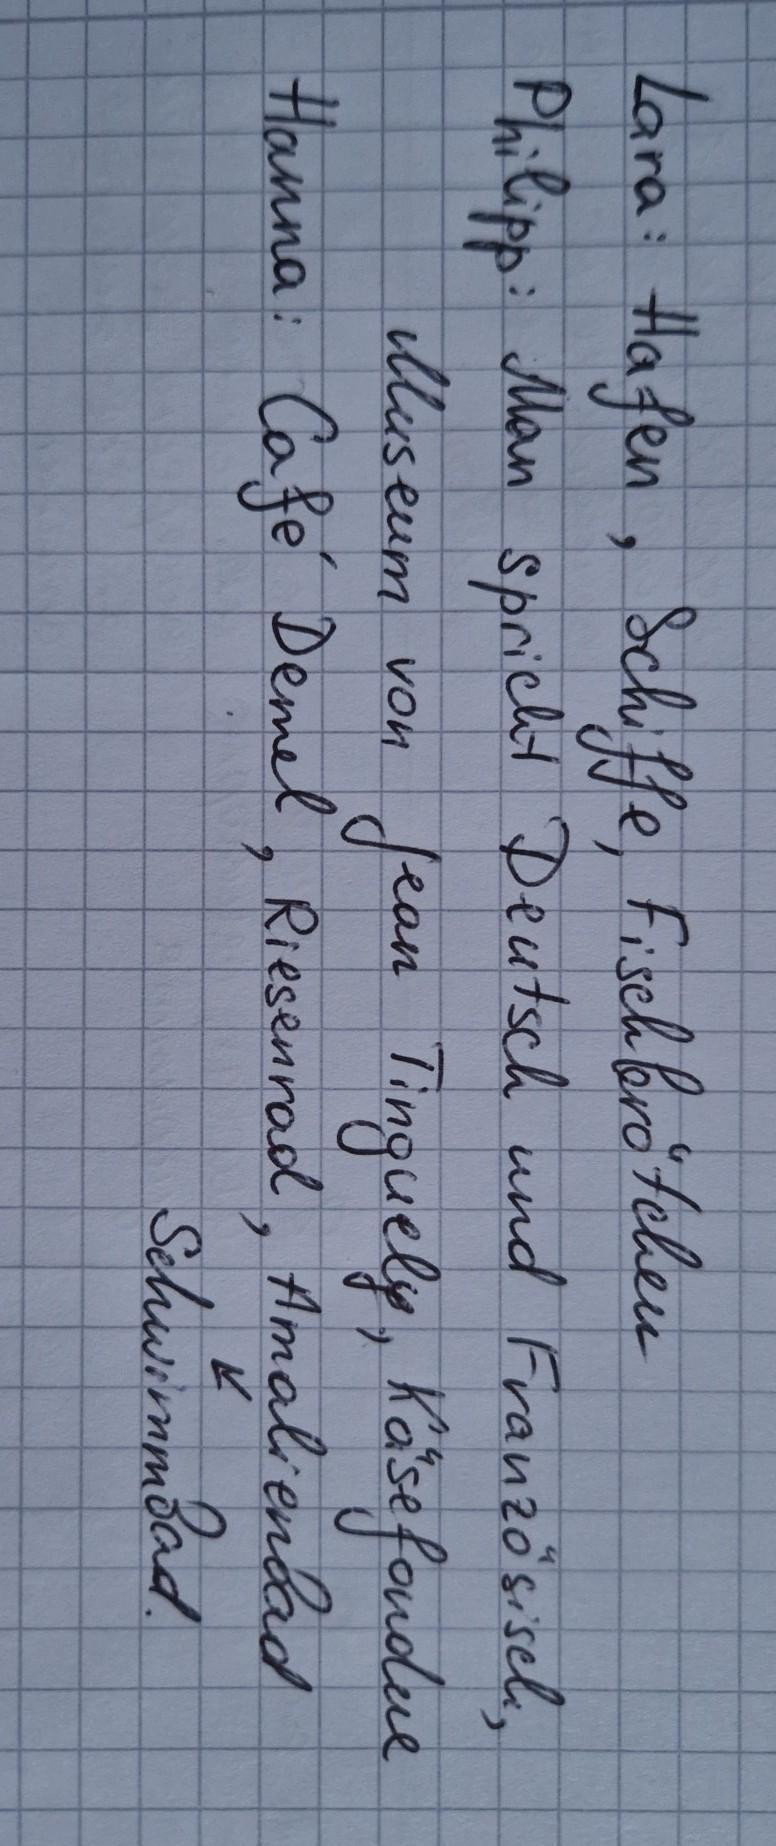 Lara: Hafen, Schiffe, Fischbrötchen
Philipp: Man spricht Deutsch und Französisch,
Museum von Jean Tinguely, Käsefondue
Hanna: Café Demel, Riesenrad, Amalienbad
↙
Schwimmbad.